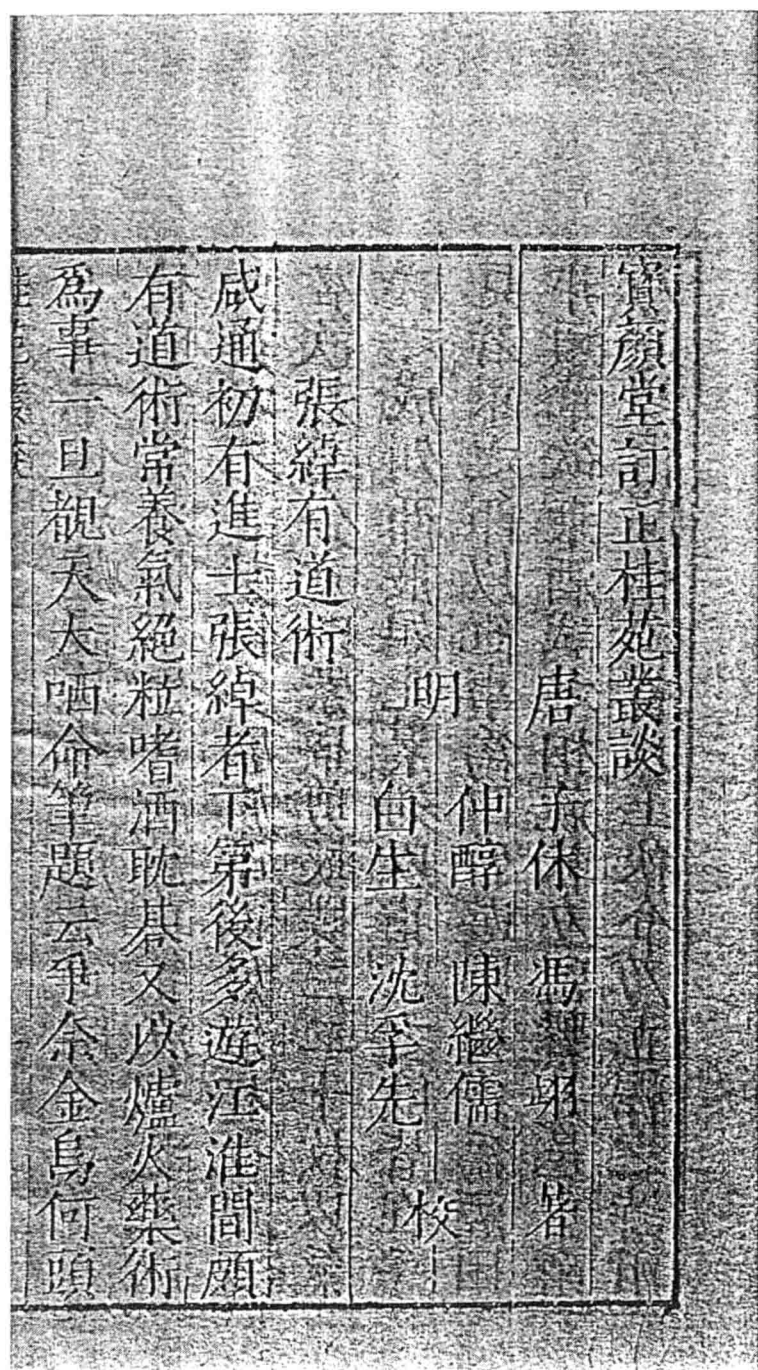 寶顏堂訂正桂苑叢談
唐 子休 馮翊 著
明 仲醇 陳繼儒
白生 沈孚先 校
張綽有道術
咸通初有進士張綽者下第後多遊江淮間頗
有道術常養氣絕粒嗜酒耽棊又以爐火藥術
為事一旦覩天大哂命筆題云爭奈金烏何頭